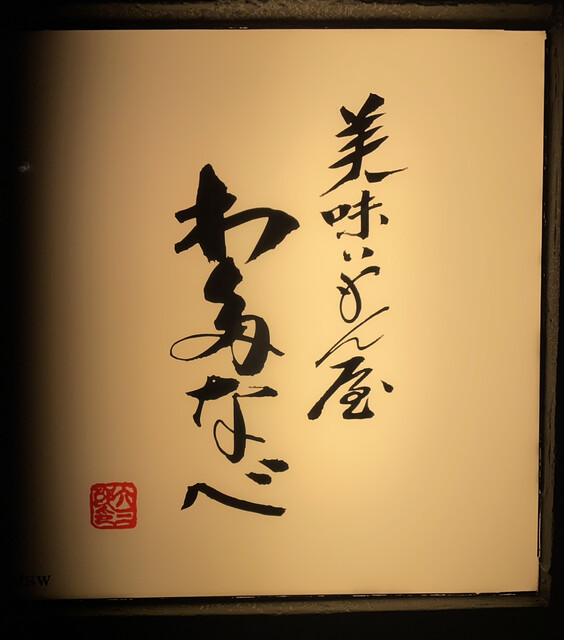 美味いもん屋
わたなべ